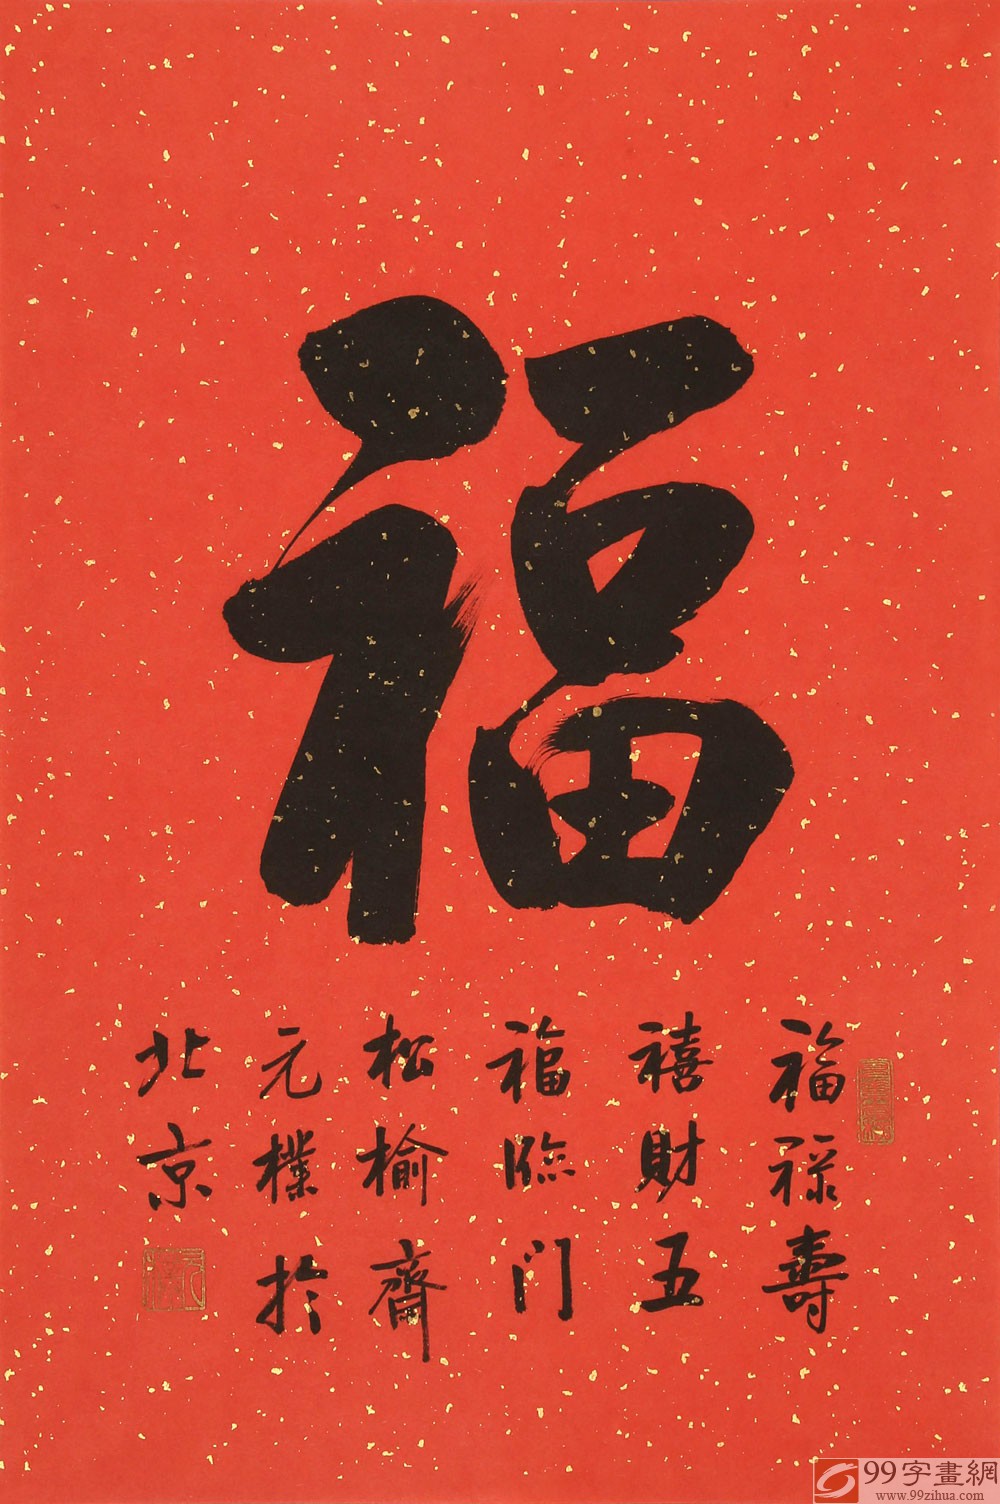 福
福祿壽
禧財五
福臨门
松榆齋
元樸於
北京
99字畫網
www.99zihua.com